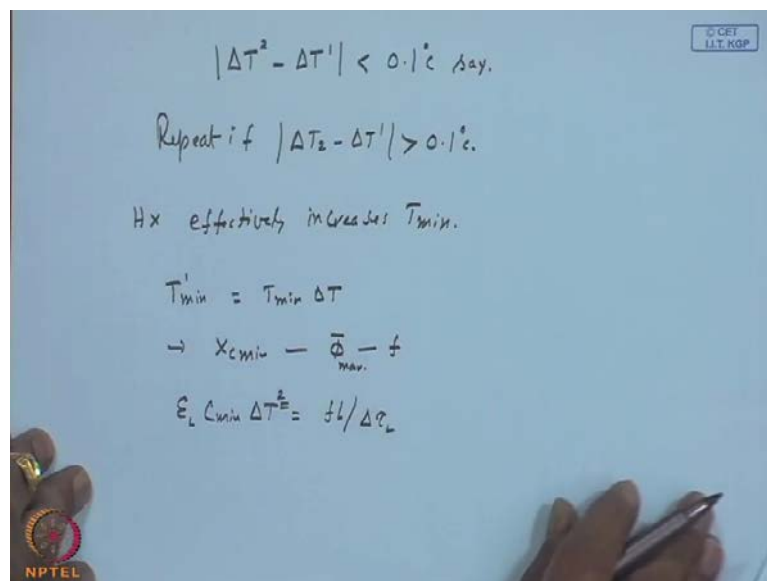 © CET
I.I.T. KGP
|ΔT² - ΔT¹| < 0.1°c say.
Repeat if |ΔT₂ - ΔT¹| > 0.1°c.
Hx effectively increases Tmin.
T'min = Tmin ΔT
→ Xcmin — Φ̄max. — f
ε_L Cmin ΔT² = fL/Δτ_L
NPTEL